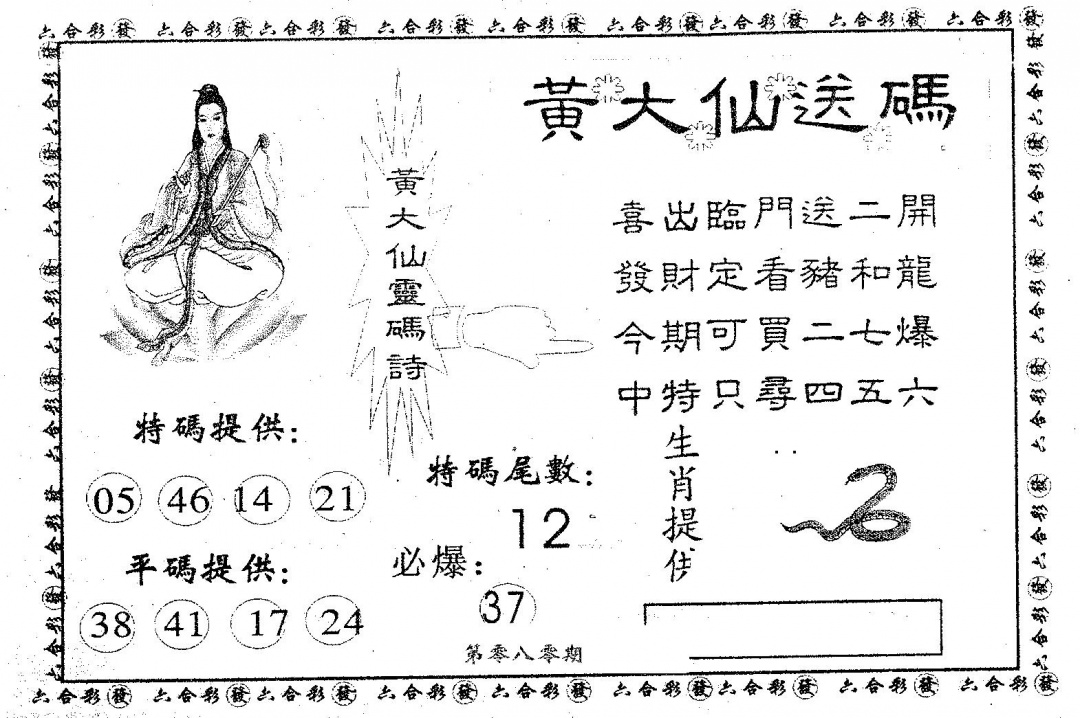 六合彩發 六合彩發六合彩發 六合彩發 六合彩發 六合彩發六合彩發 六合彩發 六合彩發
黃大仙送碼
黃大仙靈碼詩
喜出臨門送二開
發財定看豬和龍
今期可買二七爆
中特只尋四五六
特碼提供:
05 46 14 21
平碼提供:
38 41 17 24
特碼尾數:
12
必爆:
37
第零八零期
生肖提供
六合彩發 六合彩發六合彩發 六合彩發 六合彩發 六合彩發六合彩發 六合彩發 六合彩發